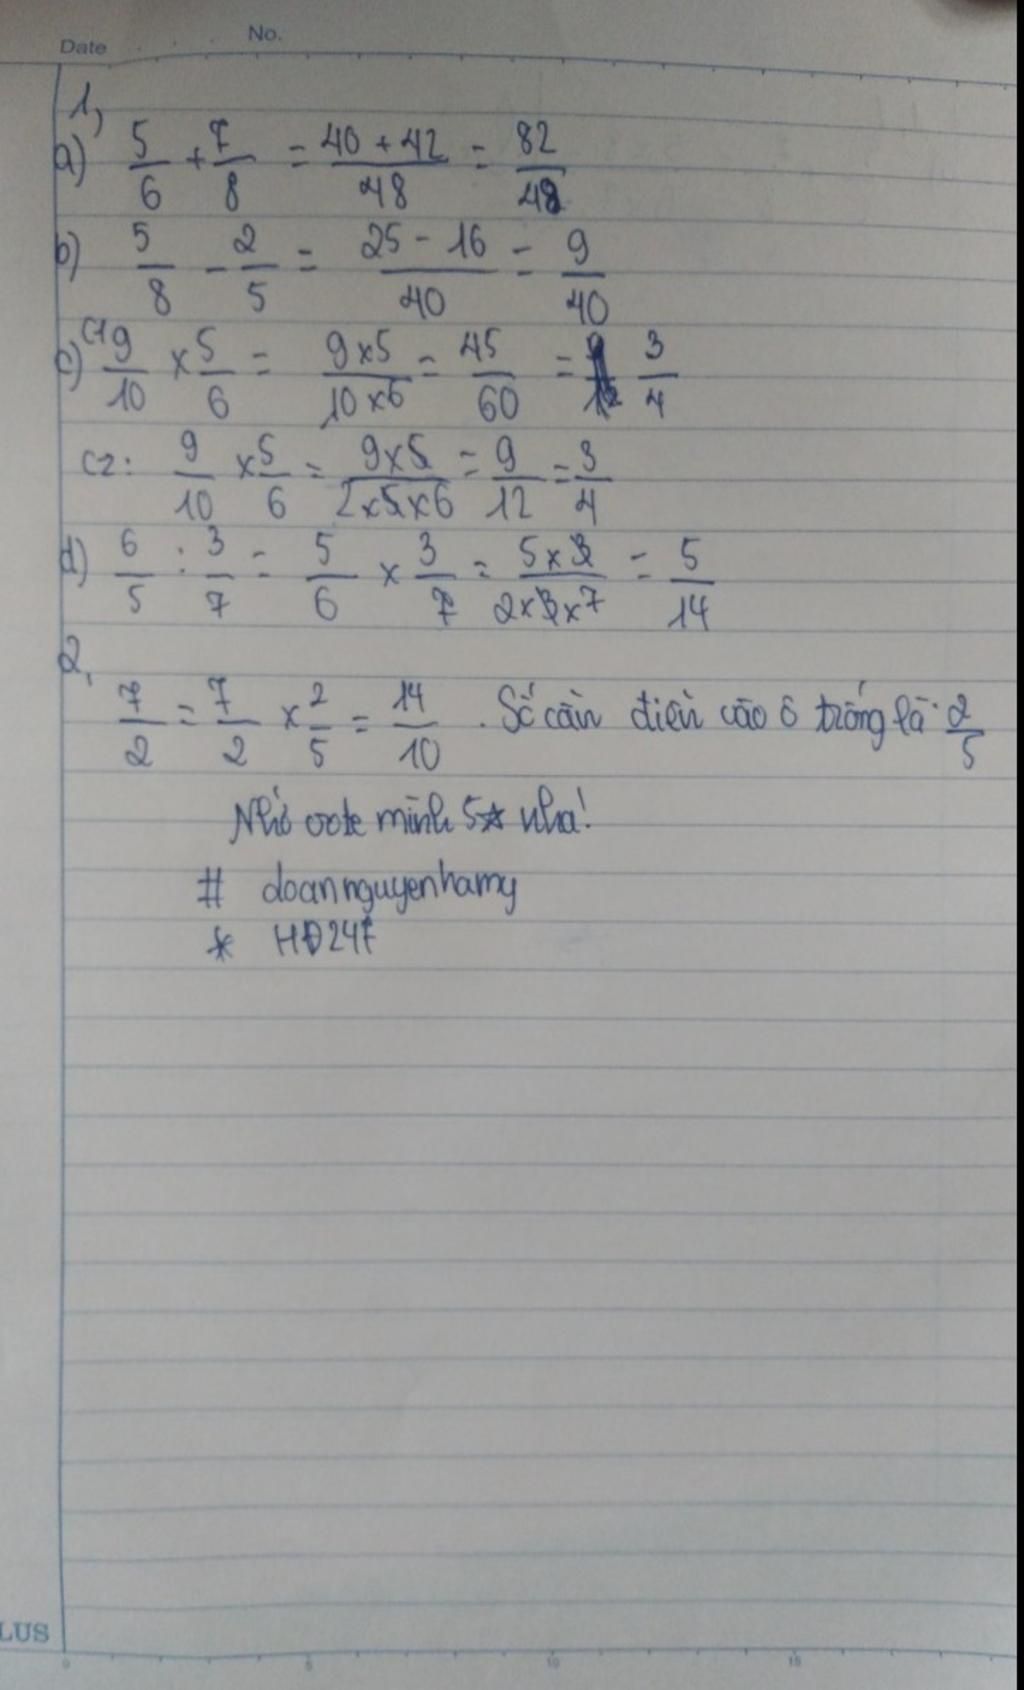 Date No.
1,
a) 5/6 + 7/8 = 40 + 42/48 = 82/48
b) 5/8 - 2/5 = 25 - 16/40 = 9/40
c) C1 9/10 x 5/6 = 9 x 5/10 x 6 = 45/60 = 3/4
C2: 9/10 x 5/6 = 9 x 5/2 x 5 x 6 = 9/12 = 3/4
d) 6/5 : 3/7 = 5/6 x 3/7 = 5 x 3/2 x 3 x 7 = 5/14
2,
7/2 = 7/2 x 2/5 = 14/10 . Số cần điền vào ô trống là: 2/5
Nhớ vote mình 5☆ nha!
# doannguyenhamy
* HĐ247
LUS
0 5 10 15